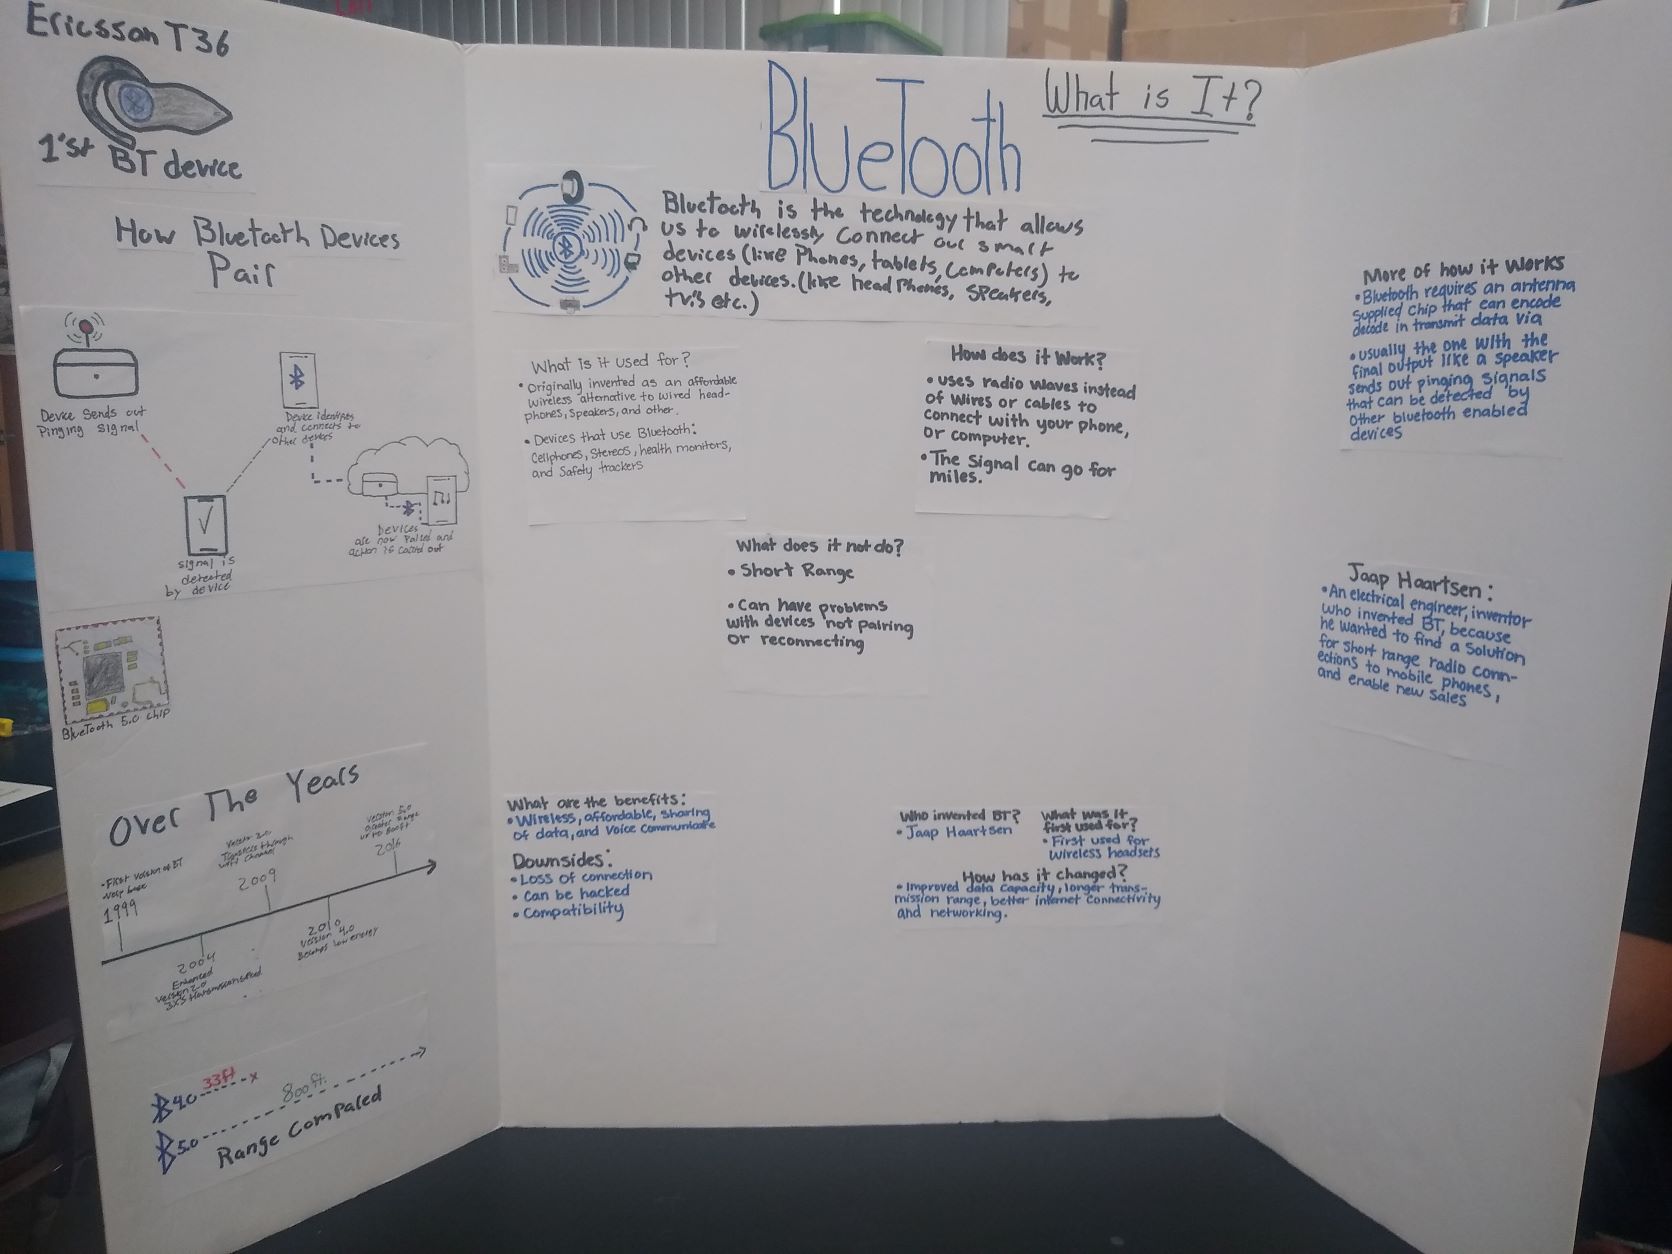 Ericsson T36
1'st BT device
How Bluetooth Devices
Pair
Device Sends out
Pinging signal
Device identifies
and connects to
other devices
signal is
detected
by device
Devices
are now Paired and
action is carried out
BlueTooth 5.0 chip
Over The Years
• First version of BT
very base
1999
2004
Enhanced
version 2.0
3X's transmission speed
Version 3.0
Transfers through
wifi channel
2009
2010
Version 4.0
Becomes low energy
Version 5.0
Greater Range
up to 800ft
2016
4.0 33ft x
5.0 800ft.
Range Compared
BlueTooth
What is It?
Bluetooth is the technology that allows
us to wirelessly Connect our smart
devices (like Phones, tablets, Computers) to
other devices. (like head Phones, Speakers,
tv's etc.)
What is it used for?
• Originally invented as an affordable
wireless alternative to wired head-
phones, Speakers, and other.
• Devices that use Bluetooth:
Cellphones, Stereos, health monitors,
and Safety trackers
How does it Work?
• uses radio waves instead
of Wires or cables to
Connect with your phone,
or computer.
• The Signal can go for
miles.
What does it not do?
• Short Range
• Can have problems
with devices not pairing
or reconnecting
What are the benefits:
• Wireless, affordable, sharing
of data, and Voice Communicate
Downsides:
• Loss of connection
• Can be hacked
• Compatibility
Who invented BT?
• Jaap Haartsen
What was it
first used for?
• First used for
wireless headsets
How has it changed?
• Improved data Capacity, longer trans-
mission range, better internet Connectivity
and networking.
More of how it Works
• Bluetooth requires an antenna
Supplied Chip that can encode
decode in transmit data via
• usually the one with the
final output like a speaker
sends out pinging signals
that can be detected by
Other bluetooth enabled
devices
Jaap Haartsen:
• An electrical engineer, inventor
who invented BT, because
he wanted to find a Solution
for Short range radio conn-
ections to mobile phones,
and enable new sales